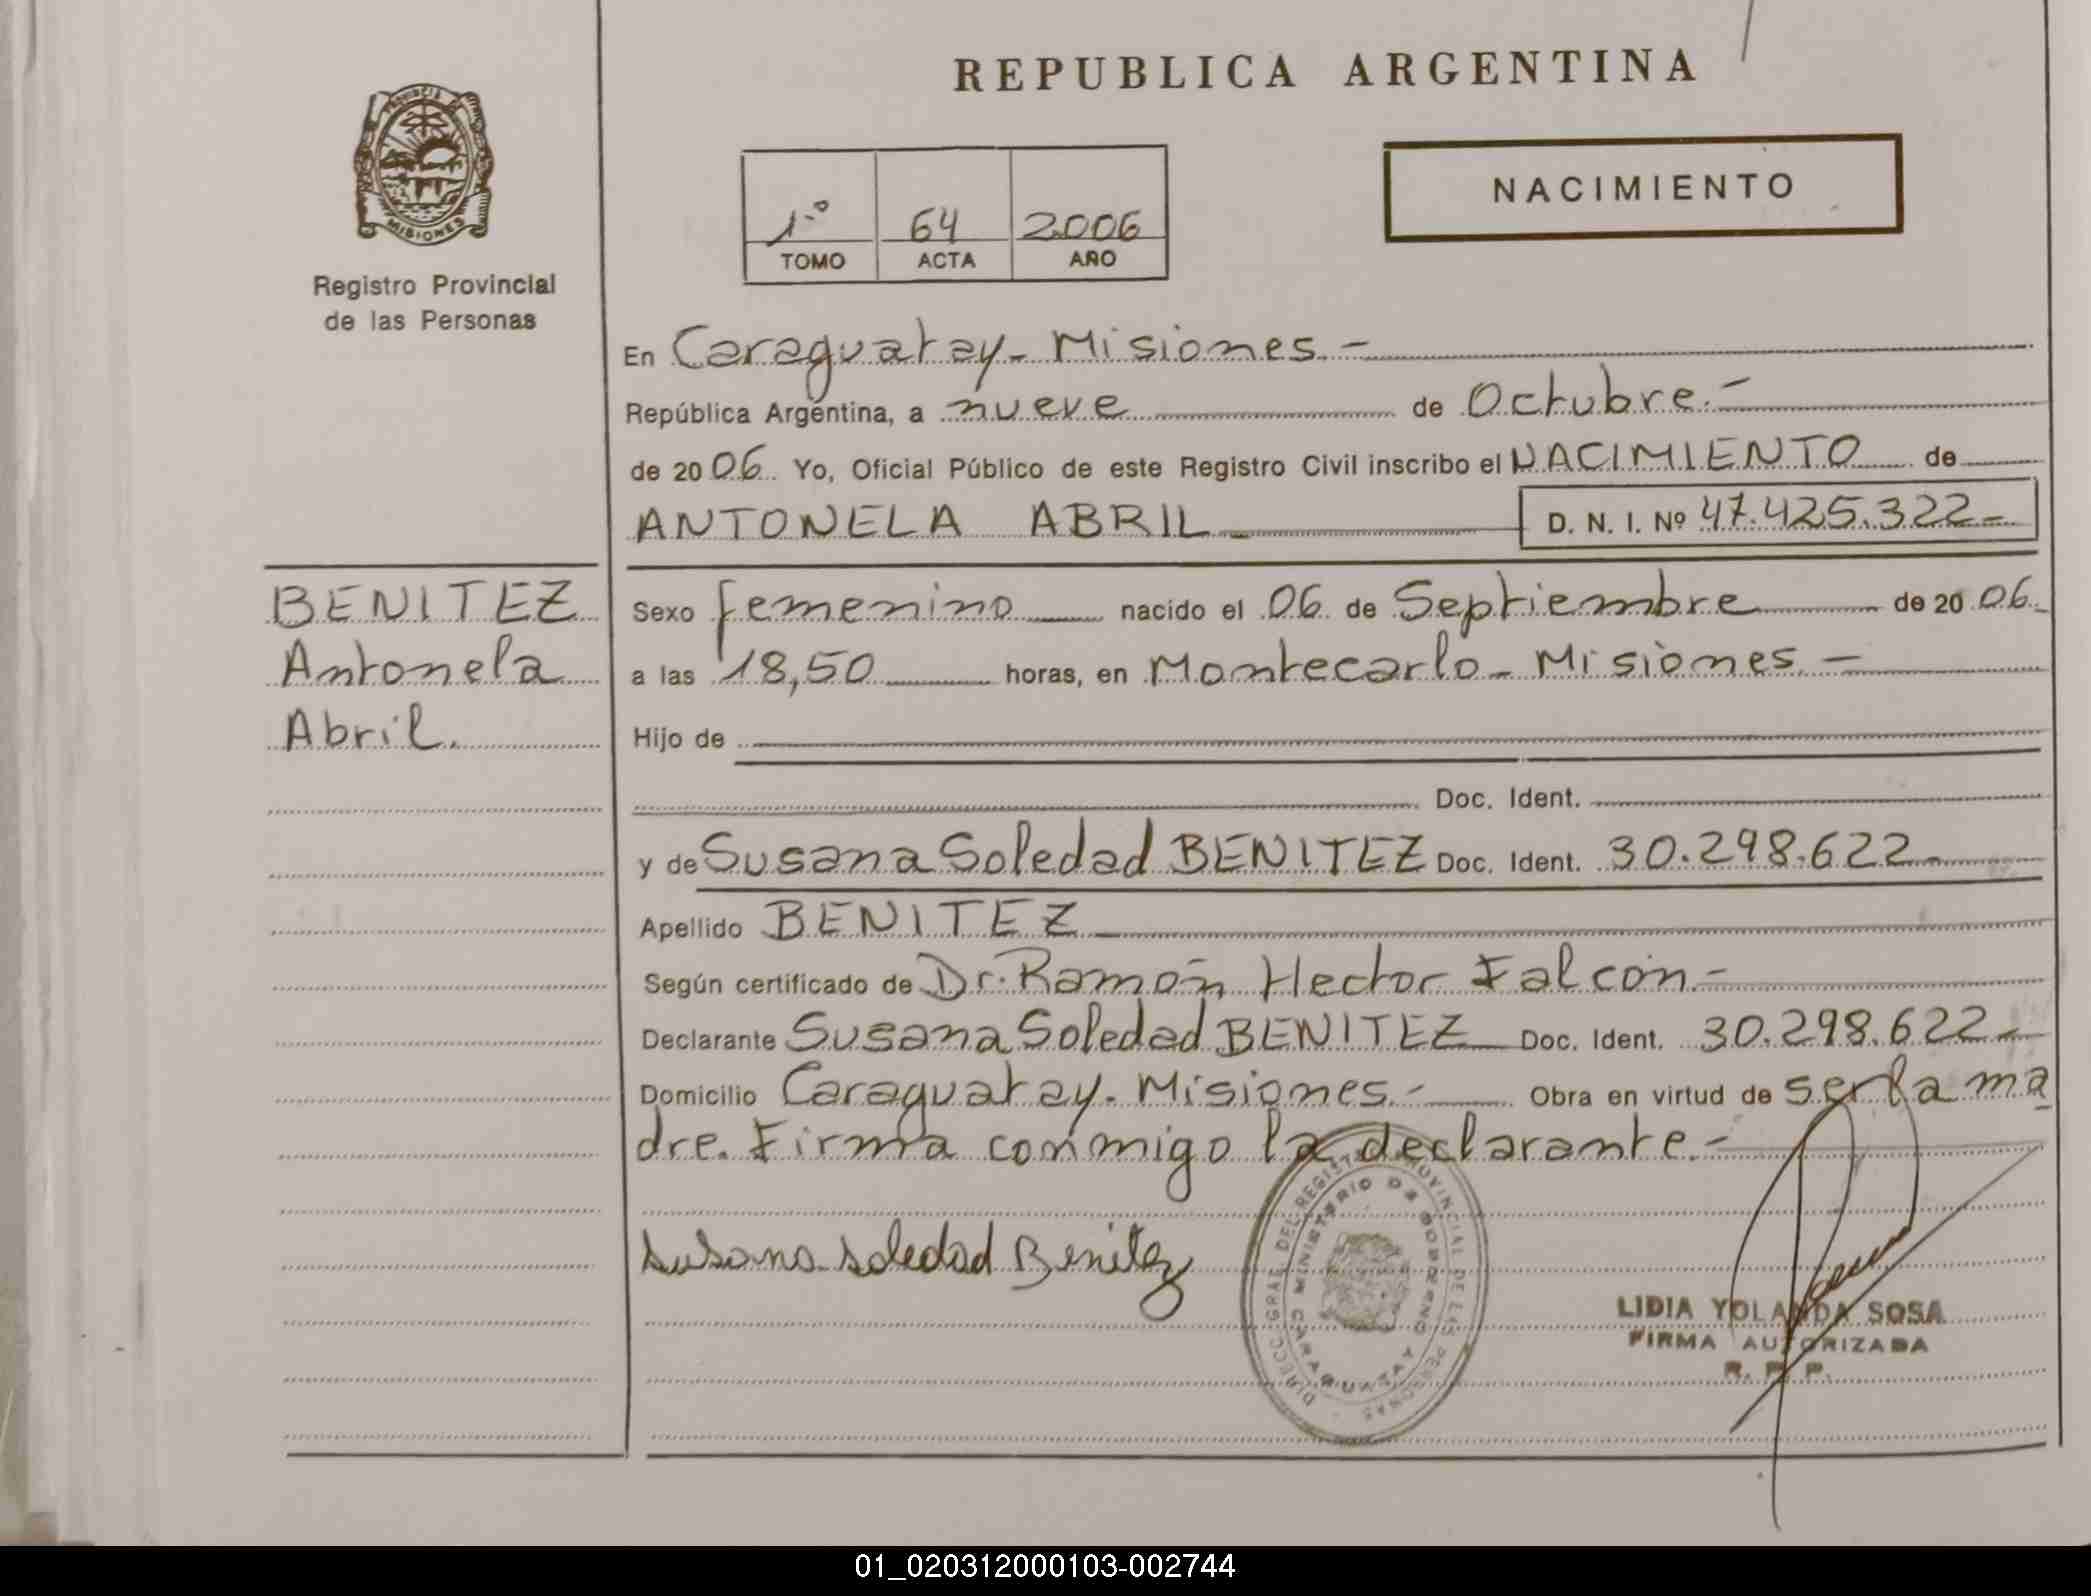 REPUBLICA ARGENTINA
PROVINCIA DE
MISIONES
Registro Provincial
de las Personas
1.º 64 2006
TOMO ACTA AÑO
NACIMIENTO
En Caraguatay - Misiones. -
República Argentina, a nueve de Octubre. -
de 2006. Yo, Oficial Público de este Registro Civil inscribo el NACIMIENTO de
ANTONELA ABRIL D. N. I. Nº 47.425.322-
BENITEZ
Antonela
Abril.
Sexo femenino nacido el 06 de Septiembre de 2006.
a las 18,50 horas, en Montecarlo - Misiones. -
Hijo de
Doc. Ident.
y de Susana Soledad BENITEZ Doc. Ident. 30.298.622-
Apellido BENITEZ
Según certificado de Dr. Ramón Hector Falcón. -
Declarante Susana Soledad BENITEZ Doc. Ident. 30.298.622-
Domicilio Caraguatay. Misiones. - Obra en virtud de ser la ma
dre. Firma conmigo la declarante. -
Susana Soledad Benitez
DIRECC. GRAL. DEL REGISTRO PROVINCIAL DE LAS PERSONAS
MINISTERIO DE GOBIERNO
CARAGUATAY
LIDIA YOLANDA SOSA
FIRMA AUTORIZADA
R. P. P.
01_020312000103-002744